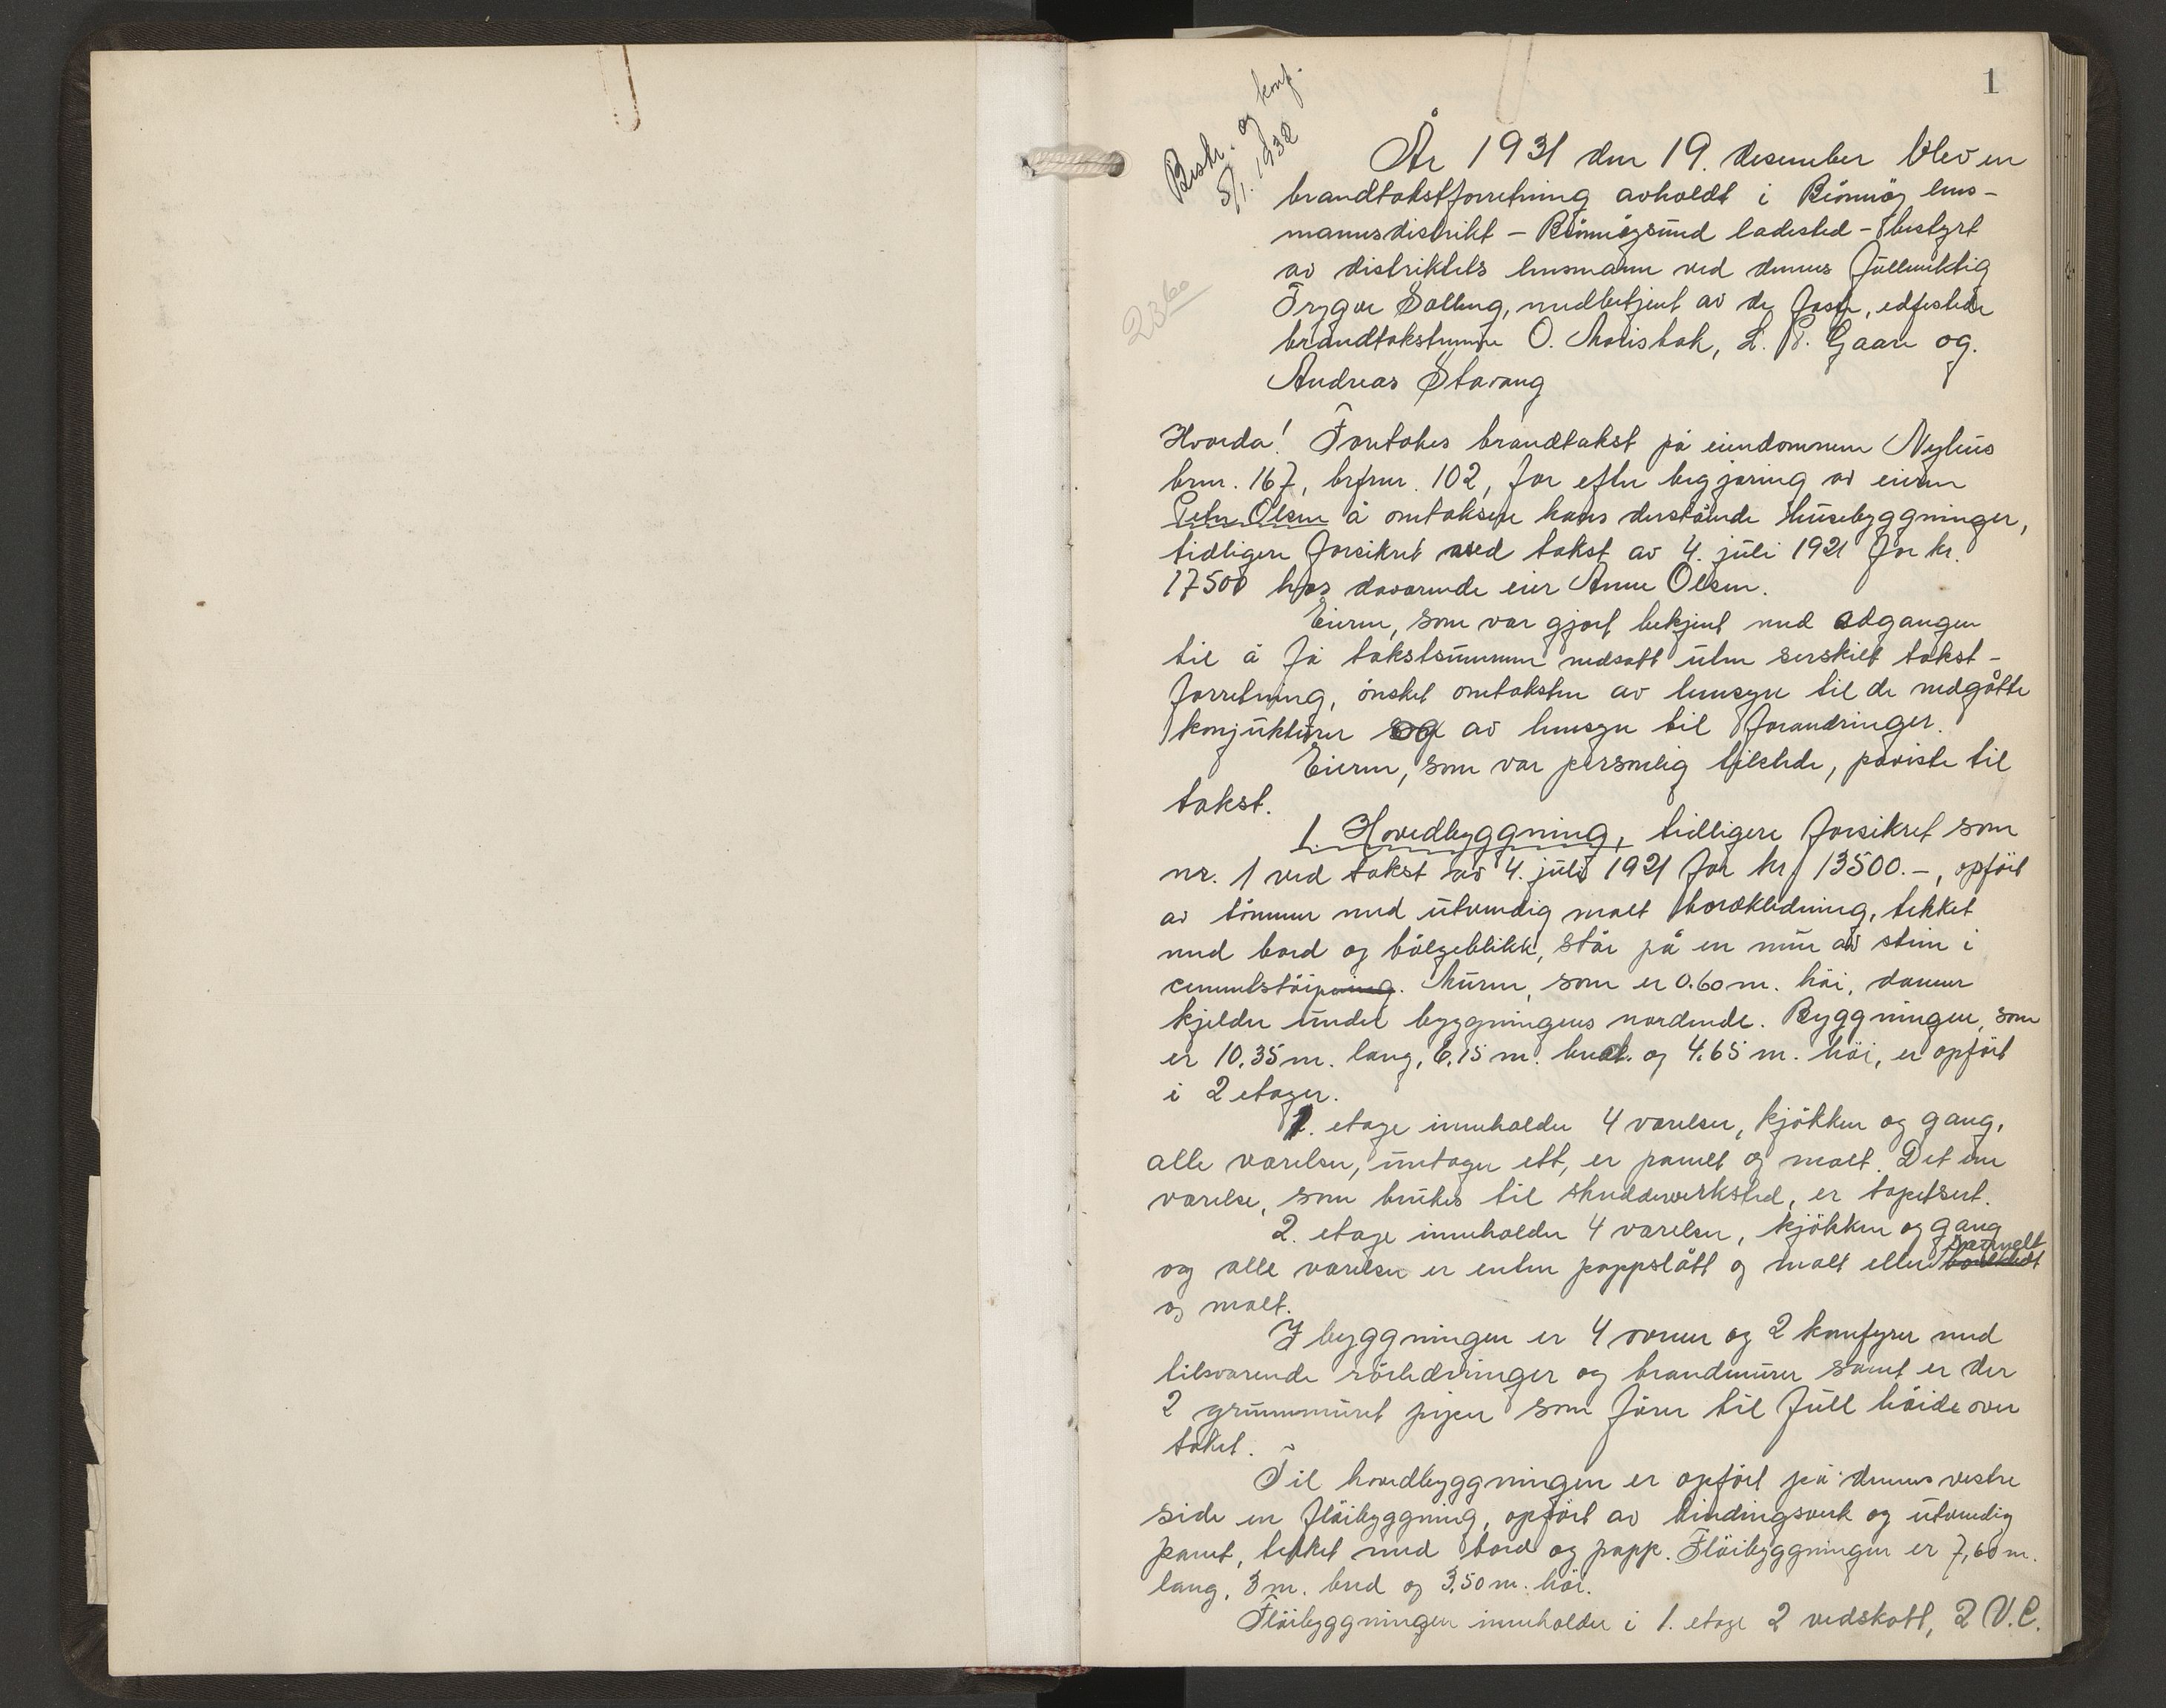 1
Beskr. og konf.
5/1. 1932
2360
År 1931 den 19. desember blev en
brandtakstforretning avholdt i Brönnöy lens-
mannsdistrikt - Brönnöysund ladested - bestyrt
av distriktets lensmann ved dennes fullmektig
Trygve Solberg, medbetjent av de faste, edfestede
brandtakstmenn O. Morisbak, L. P. Gaare og
Andreas Stavang
Hvorda! Foretokes brandtakst på eiendommen Nyhus
brnr. 167, brfrnr. 102, for efter begjæring av eieren
Peter Olsen å omtaksere hans derstående husebyggninger,
tidligere forsikret ved takst av 4. juli 1921 for kr.
17500 hos daværende eier Anne Olsen.
Eieren, som var gjort bekjent med adgangen
til å få takstsummen nedsatt uten serskilt takst-
forretning, önsket omtaksten av hensyn til de nedgåtte
konjukturer og av hensyn til forandringer.
Eieren, som var personlig tilstede, påviste til
takst.
1. Hovedbyggning, tidligere forsikret som
nr. 1 ved takst av 4. juli 1921 for kr. 13500.-, opfört
av tömmer med utvendig malt bordkledning, tekket
med bord og bölgeblikk, står på en mur av stein i
cementstöipning. Muren, som er 0.60 m. höi, danner
kjelder under byggningens nordende. Byggningen, som
er 10.35 m. lang, 6.15 m. bred og 4.65 m. höi, er opfört
i 2 etager.
1. etage inneholder 4 værelser, kjökken og gang,
alle værelser, untagen ett, er panelt og malt. Det ene
værelse, som brukes til skredderverksted, er tapetsert.
2. etage inneholder 4 værelser, kjökken og gang
og alle værelser er enten pappslått og malt eller panelt
og malt.
I byggningen er 4 ovner og 2 komfyrer med
tilsvarende rörledninger og brandmurer samt er der
2 grunnmuret piper som förer til full höide over
taket.
Til hovedbyggningen er opfört på dennes vestre
side en flöibyggning, opfört av bindingsverk og utvendig
panel, tekket med bord og papp. Flöibyggningen er 7,60 m.
lang, 3 m. bred og 3.50 m. höi.
Flöibyggningen inneholder i 1. etage 2 vedskott, 2 V.C.